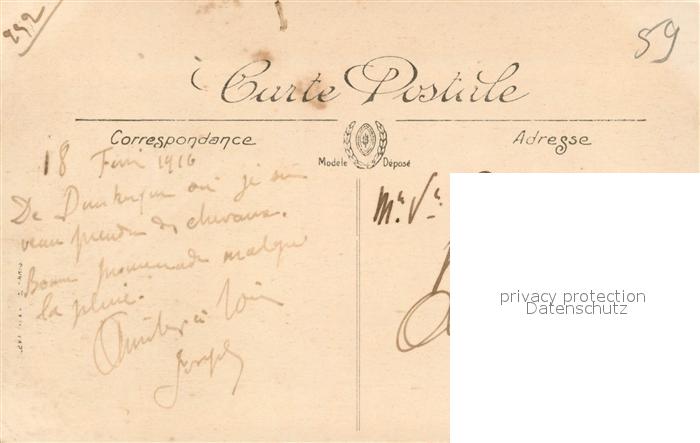 292
59
Carte Postale
Correspondance
Adresse
Modèle Déposé
18 1916
De Dunkerque où je suis
venu prendre des chevaux.
Bonne promenade malgré
la pluie.
Amitiés à
Joseph
privacy protection
Datenschutz